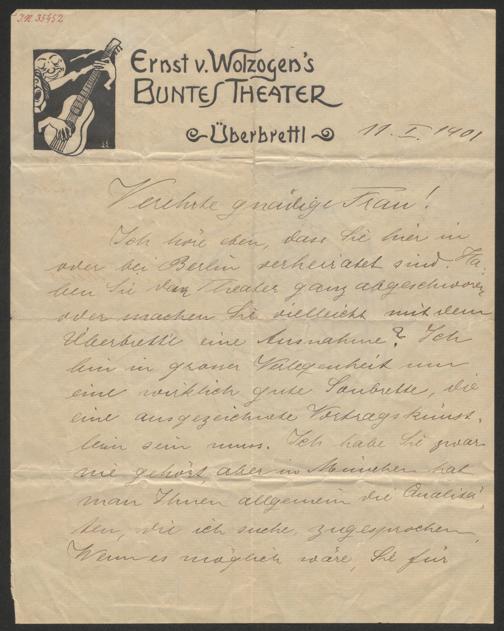 I.N. 35952
Ernst v. Wolzogen's
BUNTES THEATER
Überbrettl
11. I. 1901
Verehrte gnädige Frau!
Ich höre eben, dass Sie hier in
oder bei Berlin verheiratet sind. Ha-
ben Sie dem Theater ganz abgeschworen
oder machen Sie vielleicht mit dem
Überbrettl eine Ausnahme? Ich
bin in grosser Verlegenheit um
eine wirklich gute Soubrette, die
eine ausgezeichnete Vortragskünst-
lerin sein muss. Ich habe Sie zwar
nie gehört, aber in München hat
man Ihnen allgemein die Qualitä-
ten, die ich suche, zugesprochen.
Wenn es möglich wäre, Sie für